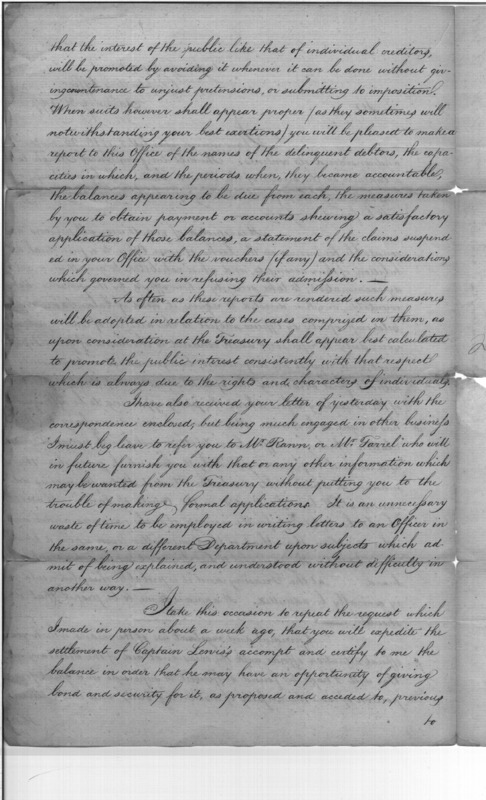 that the interest of the public like that of individual creditors,
will be promoted by avoiding it whenever it can be done without giv-
ing countenance to unjust pretensions, or submitting to imposition.
When suits however shall appear proper (as they sometimes will
notwithstanding your best exertions) you will be pleased to make a
report to this Office of the names of the delinquent debtors, the capa-
cities in which, and the periods when, they became accountable,
the balances appearing to be due from each, the measures taken
by you to obtain payment or accounts shewing a satisfactory
application of those balances, a statement of the claims suspend
ed in your Office with the vouchers (if any) and the considerations
which governed you in refusing their admission. —
As often as these reports are rendered such measures
will be adopted in relation to the cases comprized in them, as
upon consideration at the Treasury shall appear best calculated
to promote the public interest consistently with that respect
which is always due to the rights and characters of individuals.
I have also received your letter of yesterday with the
correspondence enclosed; but being much engaged in other business
I must beg leave to refer you to Mr. Rawn, or Mr. Farrel who will
in future furnish you with that or any other information which
may be wanted from the Treasury without putting you to the
trouble of making formal applications. It is an unnecessary
waste of time to be employed in writing letters to an Officer in
the same, or a different Department upon subjects which ad-
mit of being explained, and understood without difficulty in
another way. —
I take this occasion to repeat the request which
I made in person about a week ago, that you will expedite the
settlement of Captain Lewis's accompt and certify to me the
balance in order that he may have an opportunity of giving
bond and security for it, as proposed and acceded to, previous
to